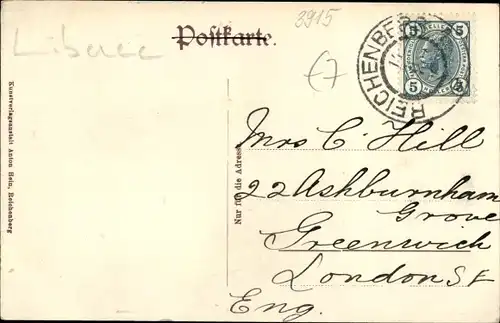 Liberec
Postkarte.
3915
€7
REICHENBERG
5 5
5 5
Kunstverlagsanstalt Anton Hein, Reichenberg
Nur für die Adresse
Mrs C. Hill
22 Ashburnham
Grove
Greenwich
London SE
Eng.